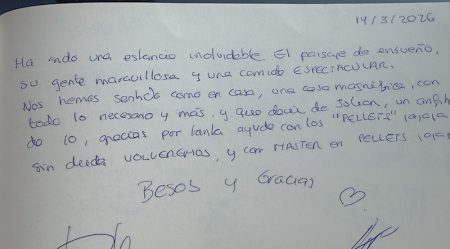 14/3/2026
Ha sido una estancia inolvidable. El paisaje de ensueño,
su gente maravillosa y una comida ESPECTACULAR.
Nos hemos sentido como en casa, una casa magnífica, con
todo lo necesario y más, y que decir de, un anfi
do 10, gracias por tanta ayuda con los "PELLETS" jajaja
Sin duda VOLVEREMOS, y con MASTER en PELLETS jajaja
Besos y Gracias